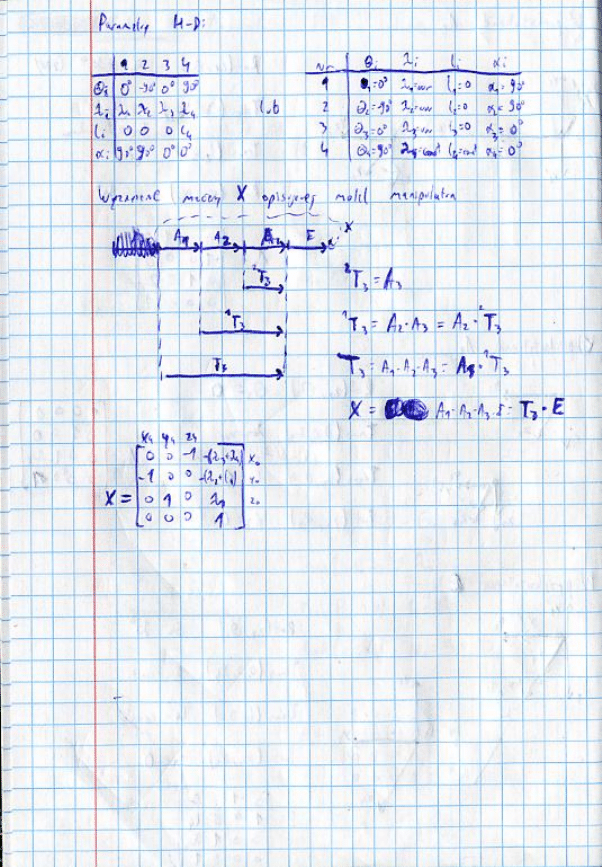 Parametry H-D:
1 2 3 4
θi 0° -90° 0° 90°
λi λ1 λ2 λ3 λ4
li 0 0 0 l4
αi 90° 90° 0° 0°
lub
Nr θi λi li αi
1 θ1=0° λ1=var l1=0 α1=90°
2 θ2=-90° λ2=var l2=0 α2=90°
3 θ3=0° λ3=var l3=0 α3=0°
4 θ4=90° λ4=const l4=const α4=0°
macierzy X opisującej model manipulatora
X
A1 A2 A3 E
²T3
¹T3
T3
²T3 = A3
¹T3 = A2·A3 = A2·²T3
T3 = A1·A2·A3 = A1·¹T3
X = A1·A2·A3·E = T3·E
x4 y4 z4
0 0 -1 -(λ3+λ4) x0
X = -1 0 0 -(λ2+l4) y0
0 1 0 λ1 z0
0 0 0 1